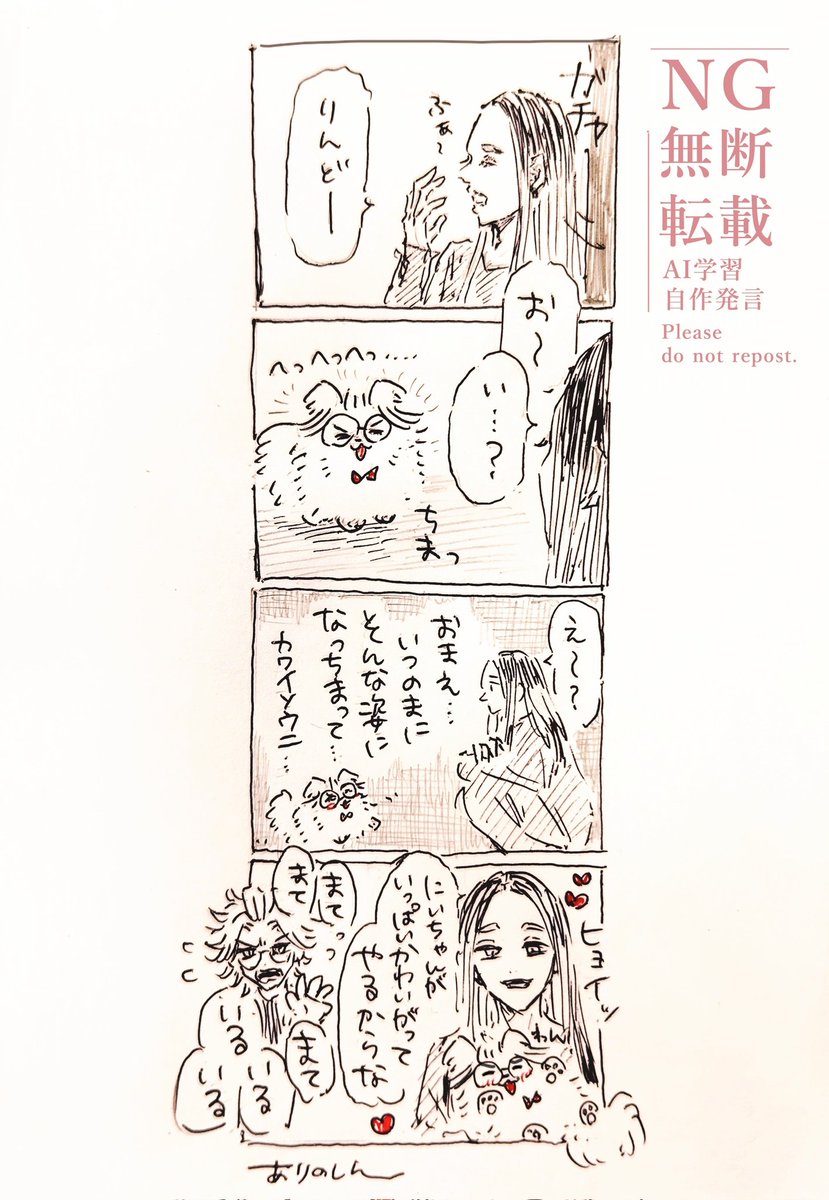 NG
無断
転載
AI学習
自作発言
Please
do not repost.
ガチャ
ふぁ〜
りんどー
お〜
い…?
へっへっへっ……
ちまっ
え〜?
おまえ…
いつのまに
そんな姿に
なっちまって…
カワイソウニ…
ヒョイッ
にいちゃんが
いっぱいかわいがって
やるからな
わん
まてっ
まて
まて
いる
いる
いる
ありのしん